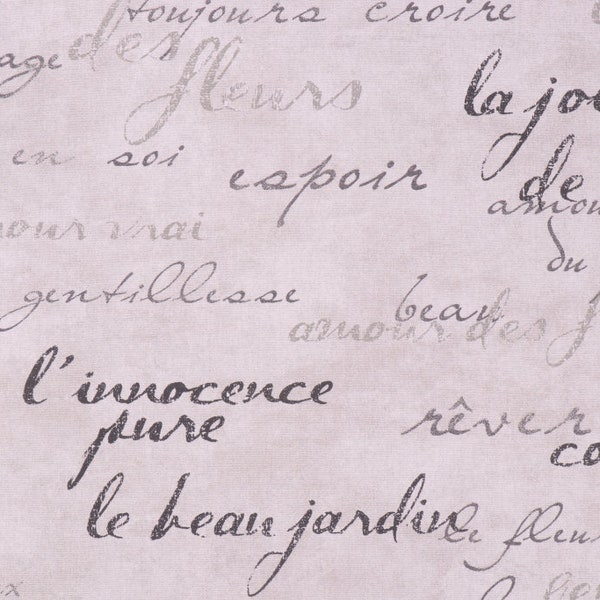 toujours croire
age des
fleurs
la jou
en soi espoir
de
amou
mour vrai
du
gentillesse
beau
amour des f
l'innocence
pure
rêver
co
le beau jardin
le fleu
x